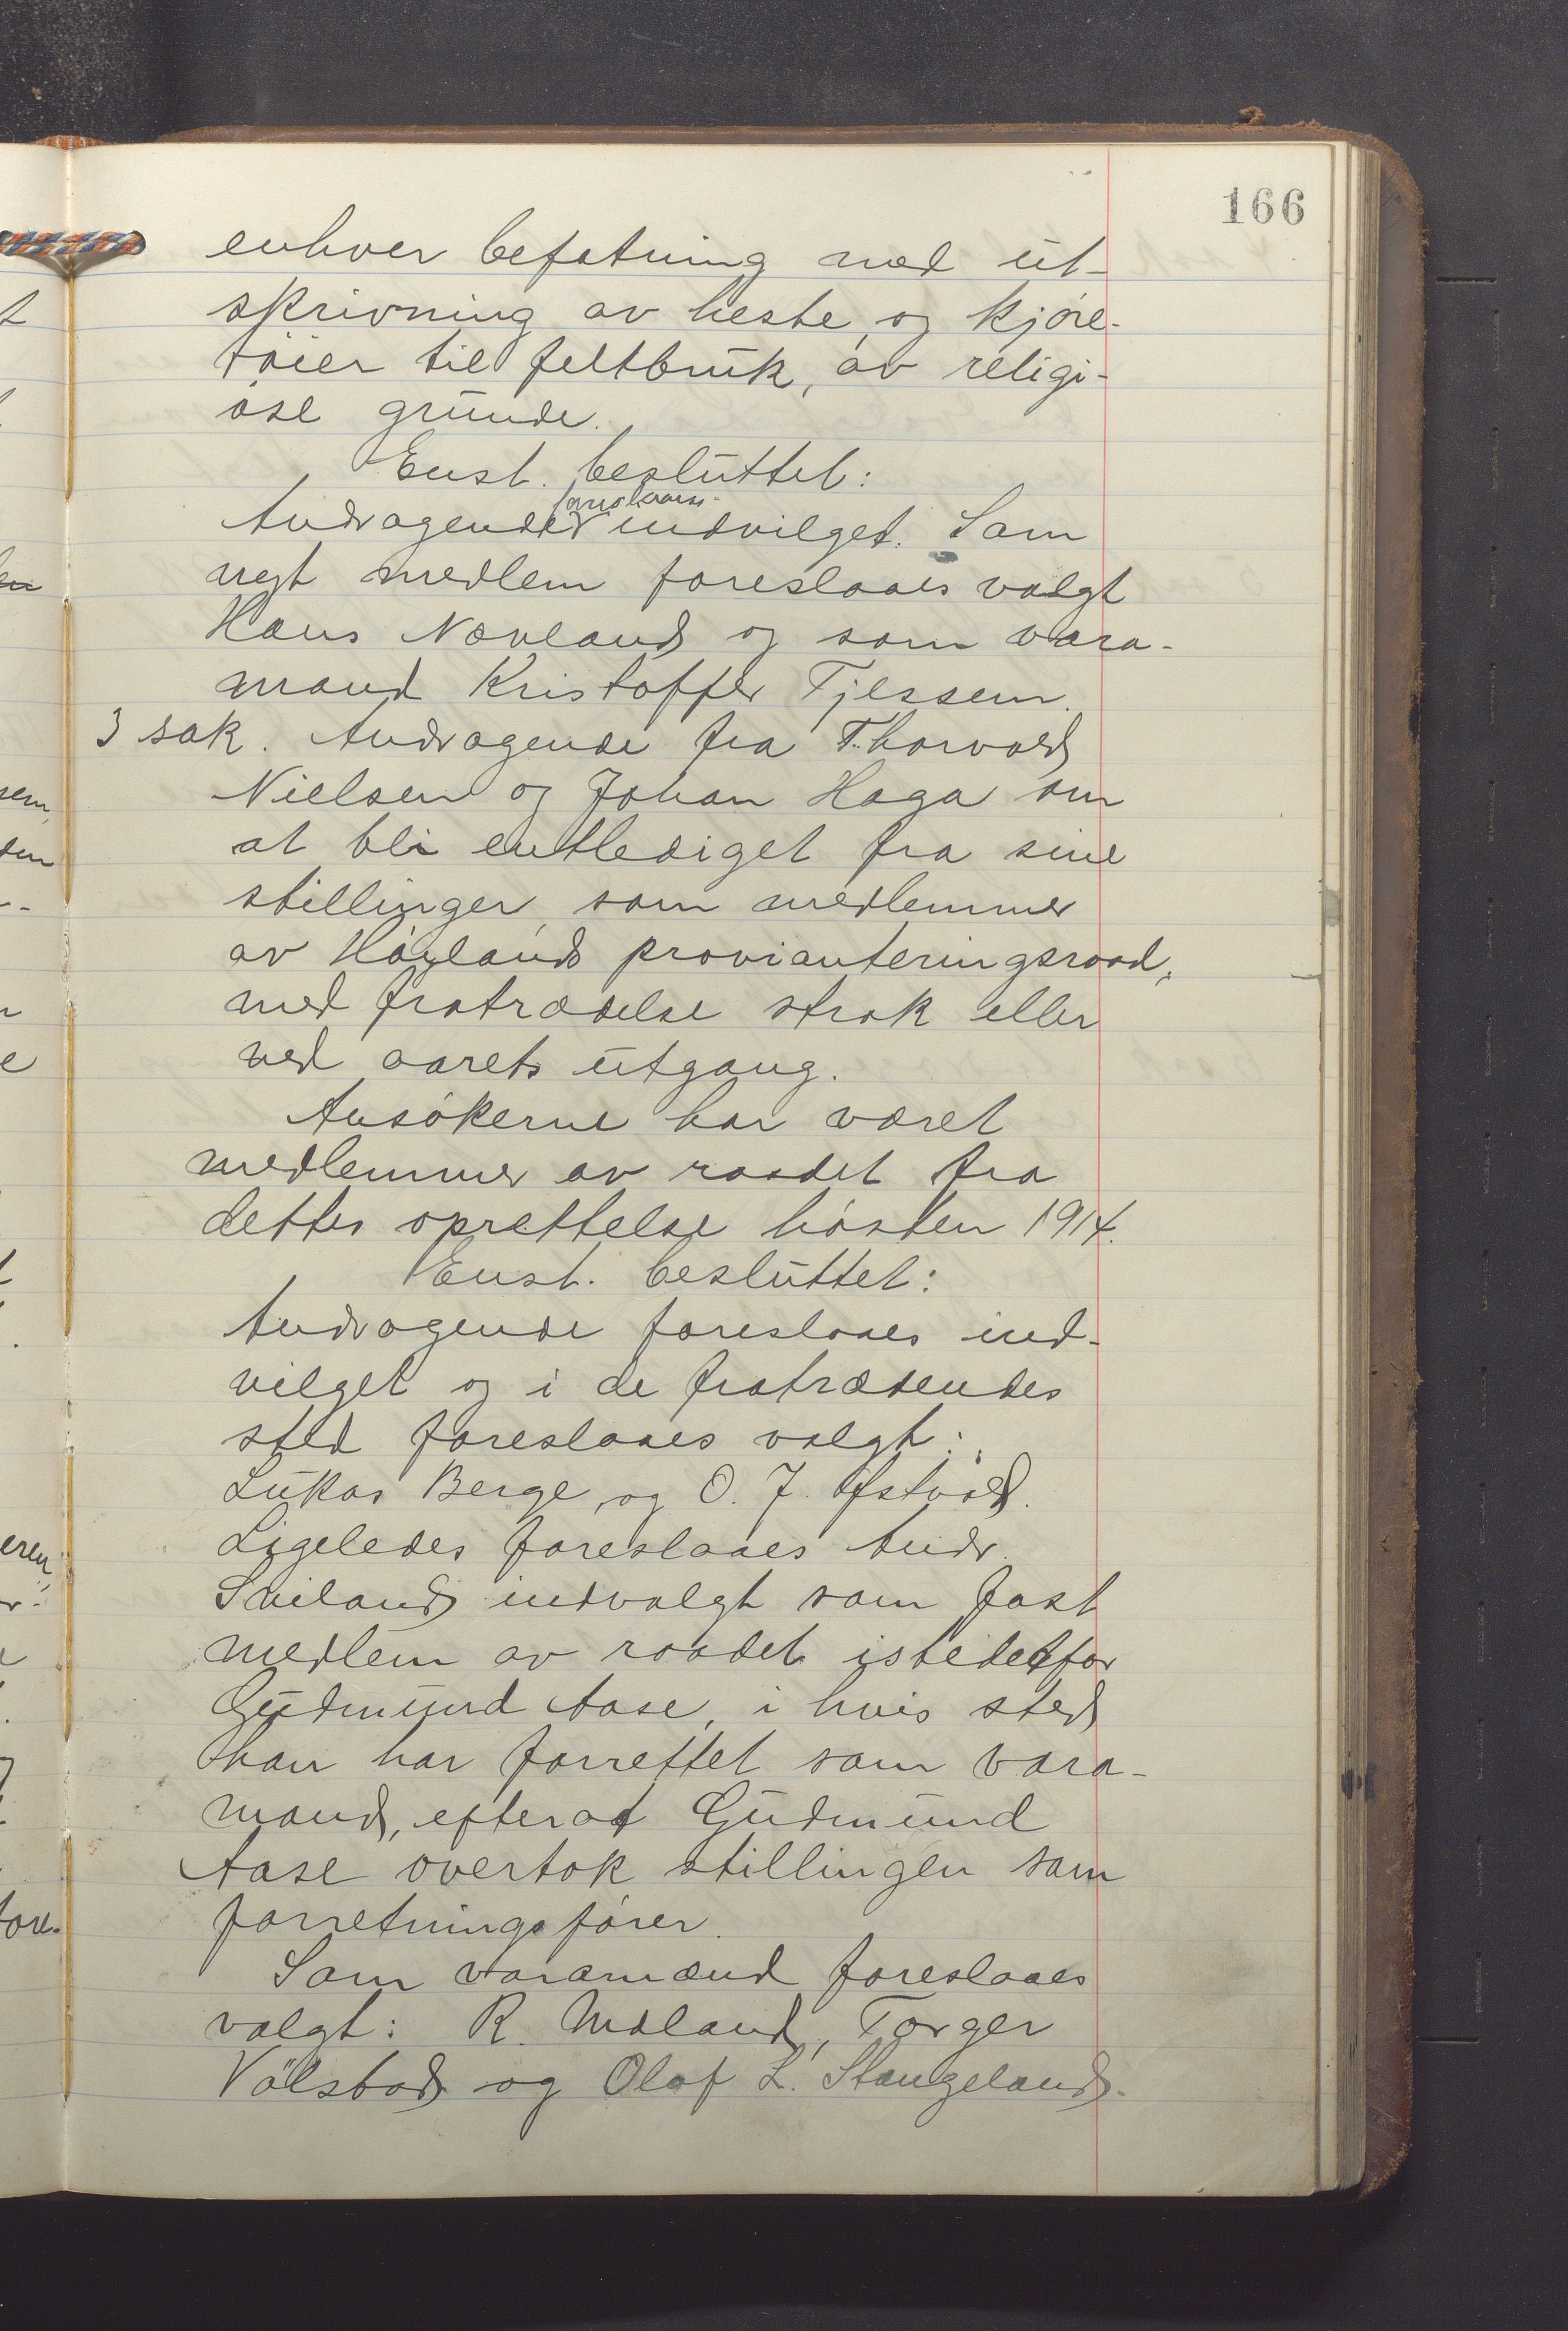 166
enhver befatning med ut-
skrivning av heste og kjøre-
tøier til feltbruk, av religi-
øse grunde.
Enst. besluttet:
foreslaaes
Andragendet indvilget. Som
nyt medlem foreslaaes valgt
Hans Nævland og som vara-
mand Kristoffer Tjessem.
3 sak. Andragende fra Thorvald
Nielsen og Johan Haga om
at bli entlediget fra sine
stillinger som medlemmer
av Høylands provianteringsraad,
med fratrædelse strak eller
ved aarets utgang.
Ansøkerne har været
medlemmer av raadet fra
dettes oprettelse høsten 1914.
Enst. besluttet:
Andragende foreslaaes ind-
vilget og i de fratrædendes
sted foreslaaes valgt:
Lukas Berge og O. J. Østvold.
Ligeledes foreslaaes Andr.
Sviland indvalgt som fast
medlem av raadet istedetfor
Gudmund Aase, i hvis sted
han har forrettet som vara-
mand, efterat Gudmund
Aase overtok stillingen som
forretningsfører.
Som varamænd foreslaaes
valgt: R. Maland, Torger
Vølstad og Olaf L. Stangeland.